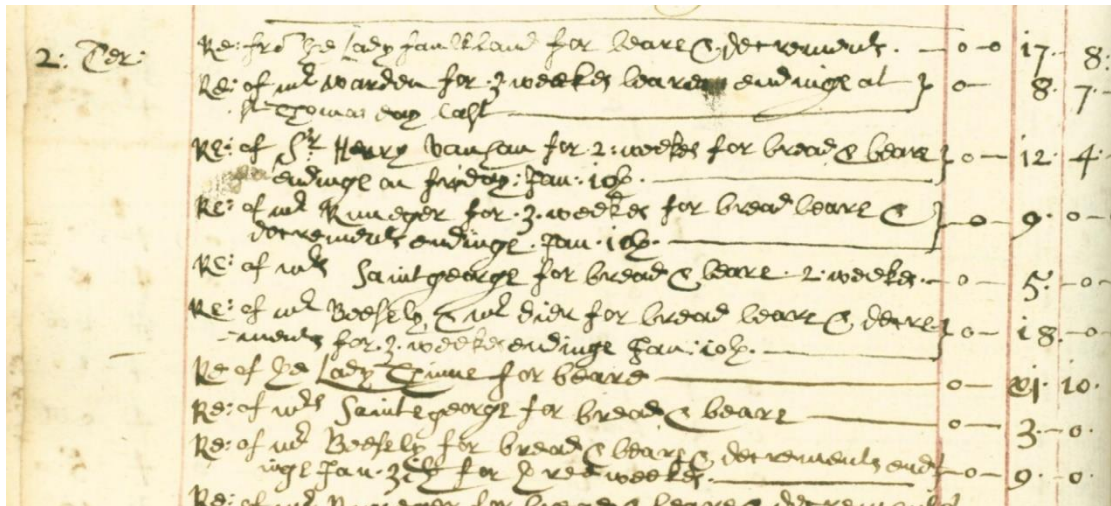 2: Ter: Re: fro ye Lady faulkland for beare & decrements. — o — o 17. 8:
Re: of mr warden for 3 weekes beare endinge at o — 8. 7.
St Thomas day last
Re: of Sr Henry Vaughan for 2: weekes for bread & beare o — 12. 4.
endinge on friday: Jan: 10th.
Re: of mr for .3. weekes for bread beare & o — 9. o —
decrements endinge. Jan. 10th.
Re: of mrs Saint george for bread & beare. 2. weekes. — o 5. — o —
Re: of mr Beesely & mr dier for bread beare & decre- o — 18. — o
-ments for .3. weekes endinge Jan: 10th.
Re of ye Lady Thinne for beare — o — 10.
Re: of mrs Saintegeorge for bread & beare — o — 3 — o.
Re: of mr Beesely for bread & beare & decrements end- — o — 9 — o.
inge Jan. for three weekes.
Re: of mr for bread & beare & decrements